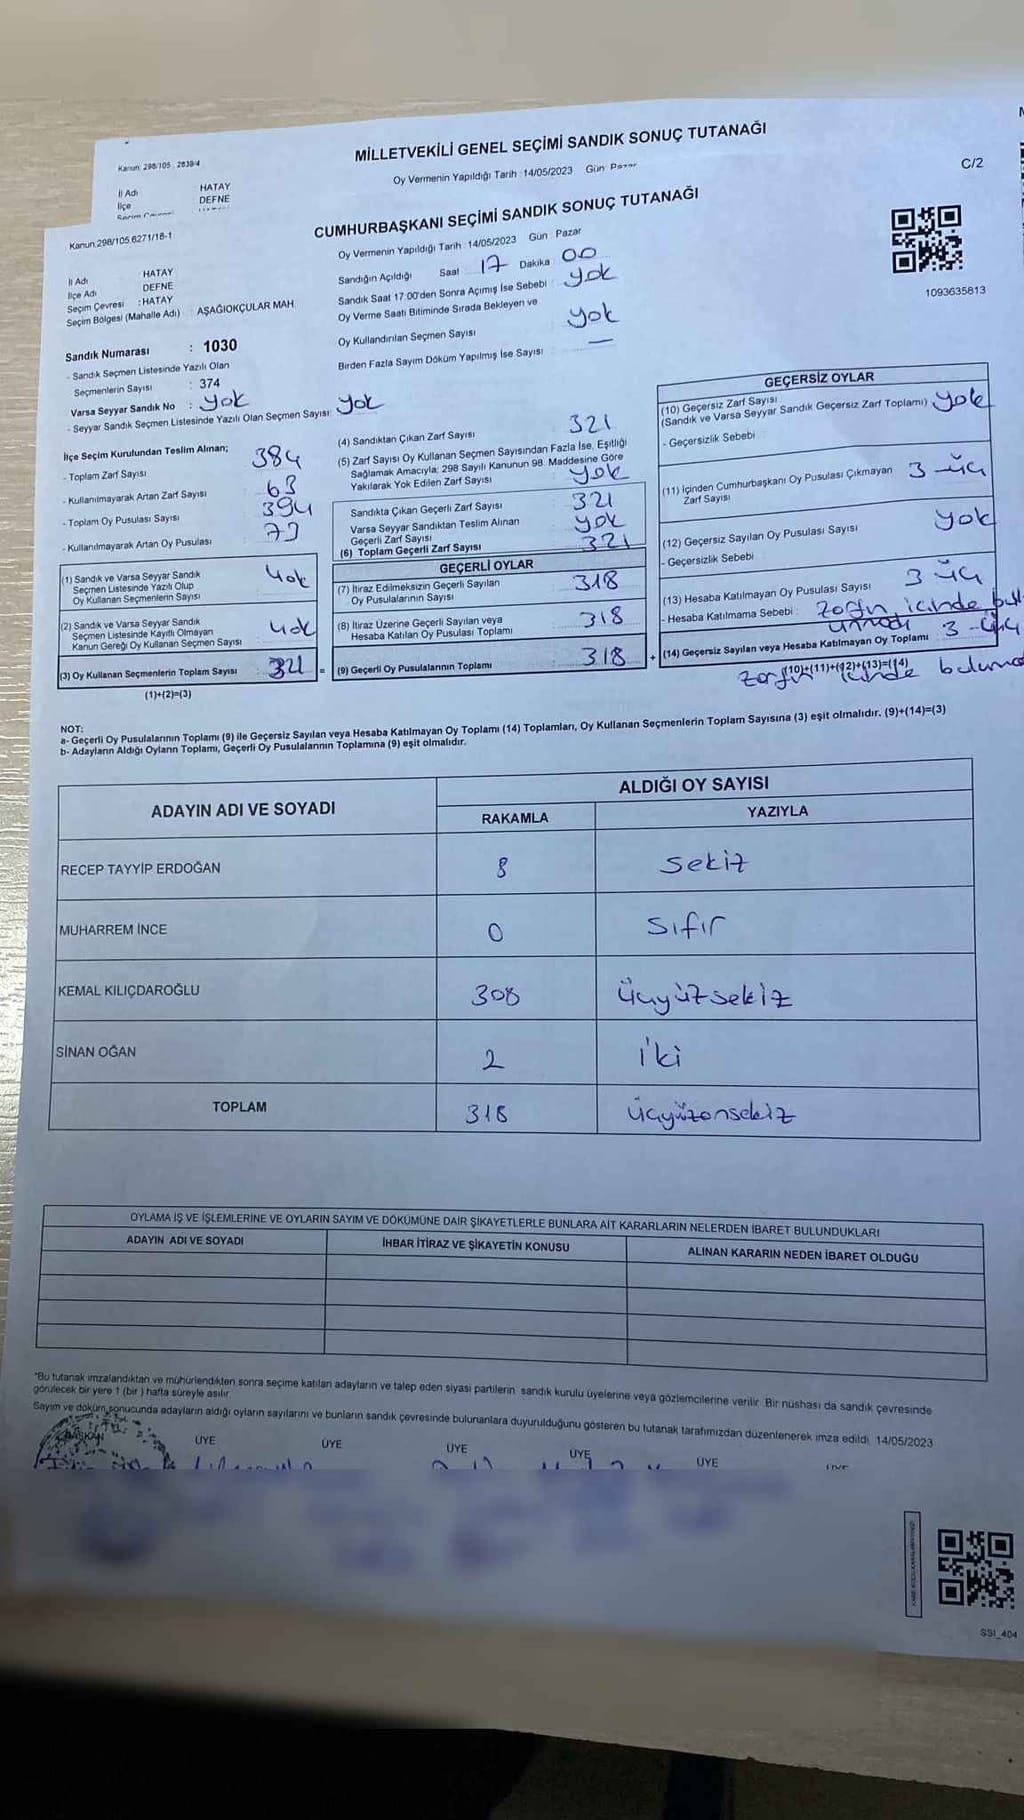 MİLLETVEKİLİ GENEL SEÇİMİ SANDIK SONUÇ TUTANAĞI
Kanun: 298/105 , 2839/4
Oy Vermenin Yapıldığı Tarih : 14/05/2023 Gün Pazar
C/2
İl Adı HATAY
İlçe DEFNE
CUMHURBAŞKANI SEÇİMİ SANDIK SONUÇ TUTANAĞI
Kanun:298/105,6271/18-1
Oy Vermenin Yapıldığı Tarih : 14/05/2023 Gün : Pazar
İl Adı HATAY
İlçe Adı DEFNE
Seçim Çevresi : HATAY
Seçim Bölgesi (Mahalle Adı) : AŞAĞIOKÇULAR MAH.
Sandığın Açıldığı Saat 17 Dakika 00
Sandık Saat 17:00'den Sonra Açımış İse Sebebi yok
Oy Verme Saati Bitiminde Sırada Bekleyen ve
Oy Kullandırılan Seçmen Sayısı yok
Birden Fazla Sayım Döküm Yapılmış İse Sayısı —
1093635813
Sandık Numarası : 1030
- Sandık Seçmen Listesinde Yazılı Olan
Seçmenlerin Sayısı : 374
Varsa Seyyar Sandık No : yok
- Seyyar Sandık Seçmen Listesinde Yazılı Olan Seçmen Sayısı: yok
İlçe Seçim Kurulundan Teslim Alınan;
- Toplam Zarf Sayısı 384
- Kullanılmayarak Artan Zarf Sayısı 63
- Toplam Oy Pusulası Sayısı 394
- Kullanılmayarak Artan Oy Pusulası 73
(1) Sandık ve Varsa Seyyar Sandık
Seçmen Listesinde Yazılı Olup
Oy Kullanan Seçmenlerin Sayısı yok
(2) Sandık ve Varsa Seyyar Sandık
Seçmen Listesinde Kayıtlı Olmayan
Kanun Gereği Oy Kullanan Seçmen Sayısı yok
(3) Oy Kullanan Seçmenlerin Toplam Sayısı 321 =
(1)+(2)=(3)
(4) Sandıktan Çıkan Zarf Sayısı 321
(5) Zarf Sayısı Oy Kullanan Seçmen Sayısından Fazla İse, Eşitliği
Sağlamak Amacıyla; 298 Sayılı Kanunun 98. Maddesine Göre
Yakılarak Yok Edilen Zarf Sayısı yok
Sandıkta Çıkan Geçerli Zarf Sayısı 321
Varsa Seyyar Sandıktan Teslim Alınan
Geçerli Zarf Sayısı yok
(6) Toplam Geçerli Zarf Sayısı 321
GEÇERLİ OYLAR
(7) İtiraz Edilmeksizin Geçerli Sayılan
Oy Pusulalarının Sayısı 318
(8) İtiraz Üzerine Geçerli Sayılan veya
Hesaba Katılan Oy Pusulası Toplamı 318
(9) Geçerli Oy Pusulalarının Toplamı 318 +
GEÇERSİZ OYLAR
(10) Geçersiz Zarf Sayısı
(Sandık ve Varsa Seyyar Sandık Geçersiz Zarf Toplamı) yok
- Geçersizlik Sebebi
(11) İçinden Cumhurbaşkanı Oy Pusulası Çıkmayan
Zarf Sayısı 3 - üç
(12) Geçersiz Sayılan Oy Pusulası Sayısı yok
- Geçersizlik Sebebi
(13) Hesaba Katılmayan Oy Pusulası Sayısı 3 üç
- Hesaba Katılmama Sebebi : zarfın içinde
(14) Geçersiz Sayılan veya Hesaba Katılmayan Oy Toplamı 3 - üç
(10)+(11)+(12)+(13)=(14)
zarfın içinde
NOT:
a- Geçerli Oy Pusulalarının Toplamı (9) ile Geçersiz Sayılan veya Hesaba Katılmayan Oy Toplamı (14) Toplamları, Oy Kullanan Seçmenlerin Toplam Sayısına (3) eşit olmalıdır. (9)+(14)=(3)
b- Adayların Aldığı Oyların Toplamı, Geçerli Oy Pusulalarının Toplamına (9) eşit olmalıdır.
ADAYIN ADI VE SOYADI
ALDIĞI OY SAYISI
RAKAMLA YAZIYLA
RECEP TAYYİP ERDOĞAN 8 sekiz
MUHARREM İNCE 0 sıfır
KEMAL KILIÇDAROĞLU 308 üçyüzsekiz
SİNAN OĞAN 2 iki
TOPLAM 318 üçyüzonsekiz
OYLAMA İŞ VE İŞLEMLERİNE VE OYLARIN SAYIM VE DÖKÜMÜNE DAİR ŞİKAYETLERLE BUNLARA AİT KARARLARIN NELERDEN İBARET BULUNDUKLARI
ADAYIN ADI VE SOYADI İHBAR İTİRAZ VE ŞİKAYETİN KONUSU ALINAN KARARIN NEDEN İBARET OLDUĞU
*Bu tutanak imzalandıktan ve mühürlendikten sonra seçime katılan adayların ve talep eden siyasi partilerin sandık kurulu üyelerine veya gözlemcilerine verilir. Bir nüshası da sandık çevresinde
görülecek bir yere 1 (bir ) hafta süreyle asılır.
Sayım ve döküm sonucunda adayların aldığı oyların sayılarını ve bunların sandık çevresinde bulunanlara duyurulduğunu gösteren bu tutanak tarafımızdan düzenlenerek imza edildi. 14/05/2023
BAŞKAN ÜYE ÜYE ÜYE ÜYE ÜYE
SSI_404